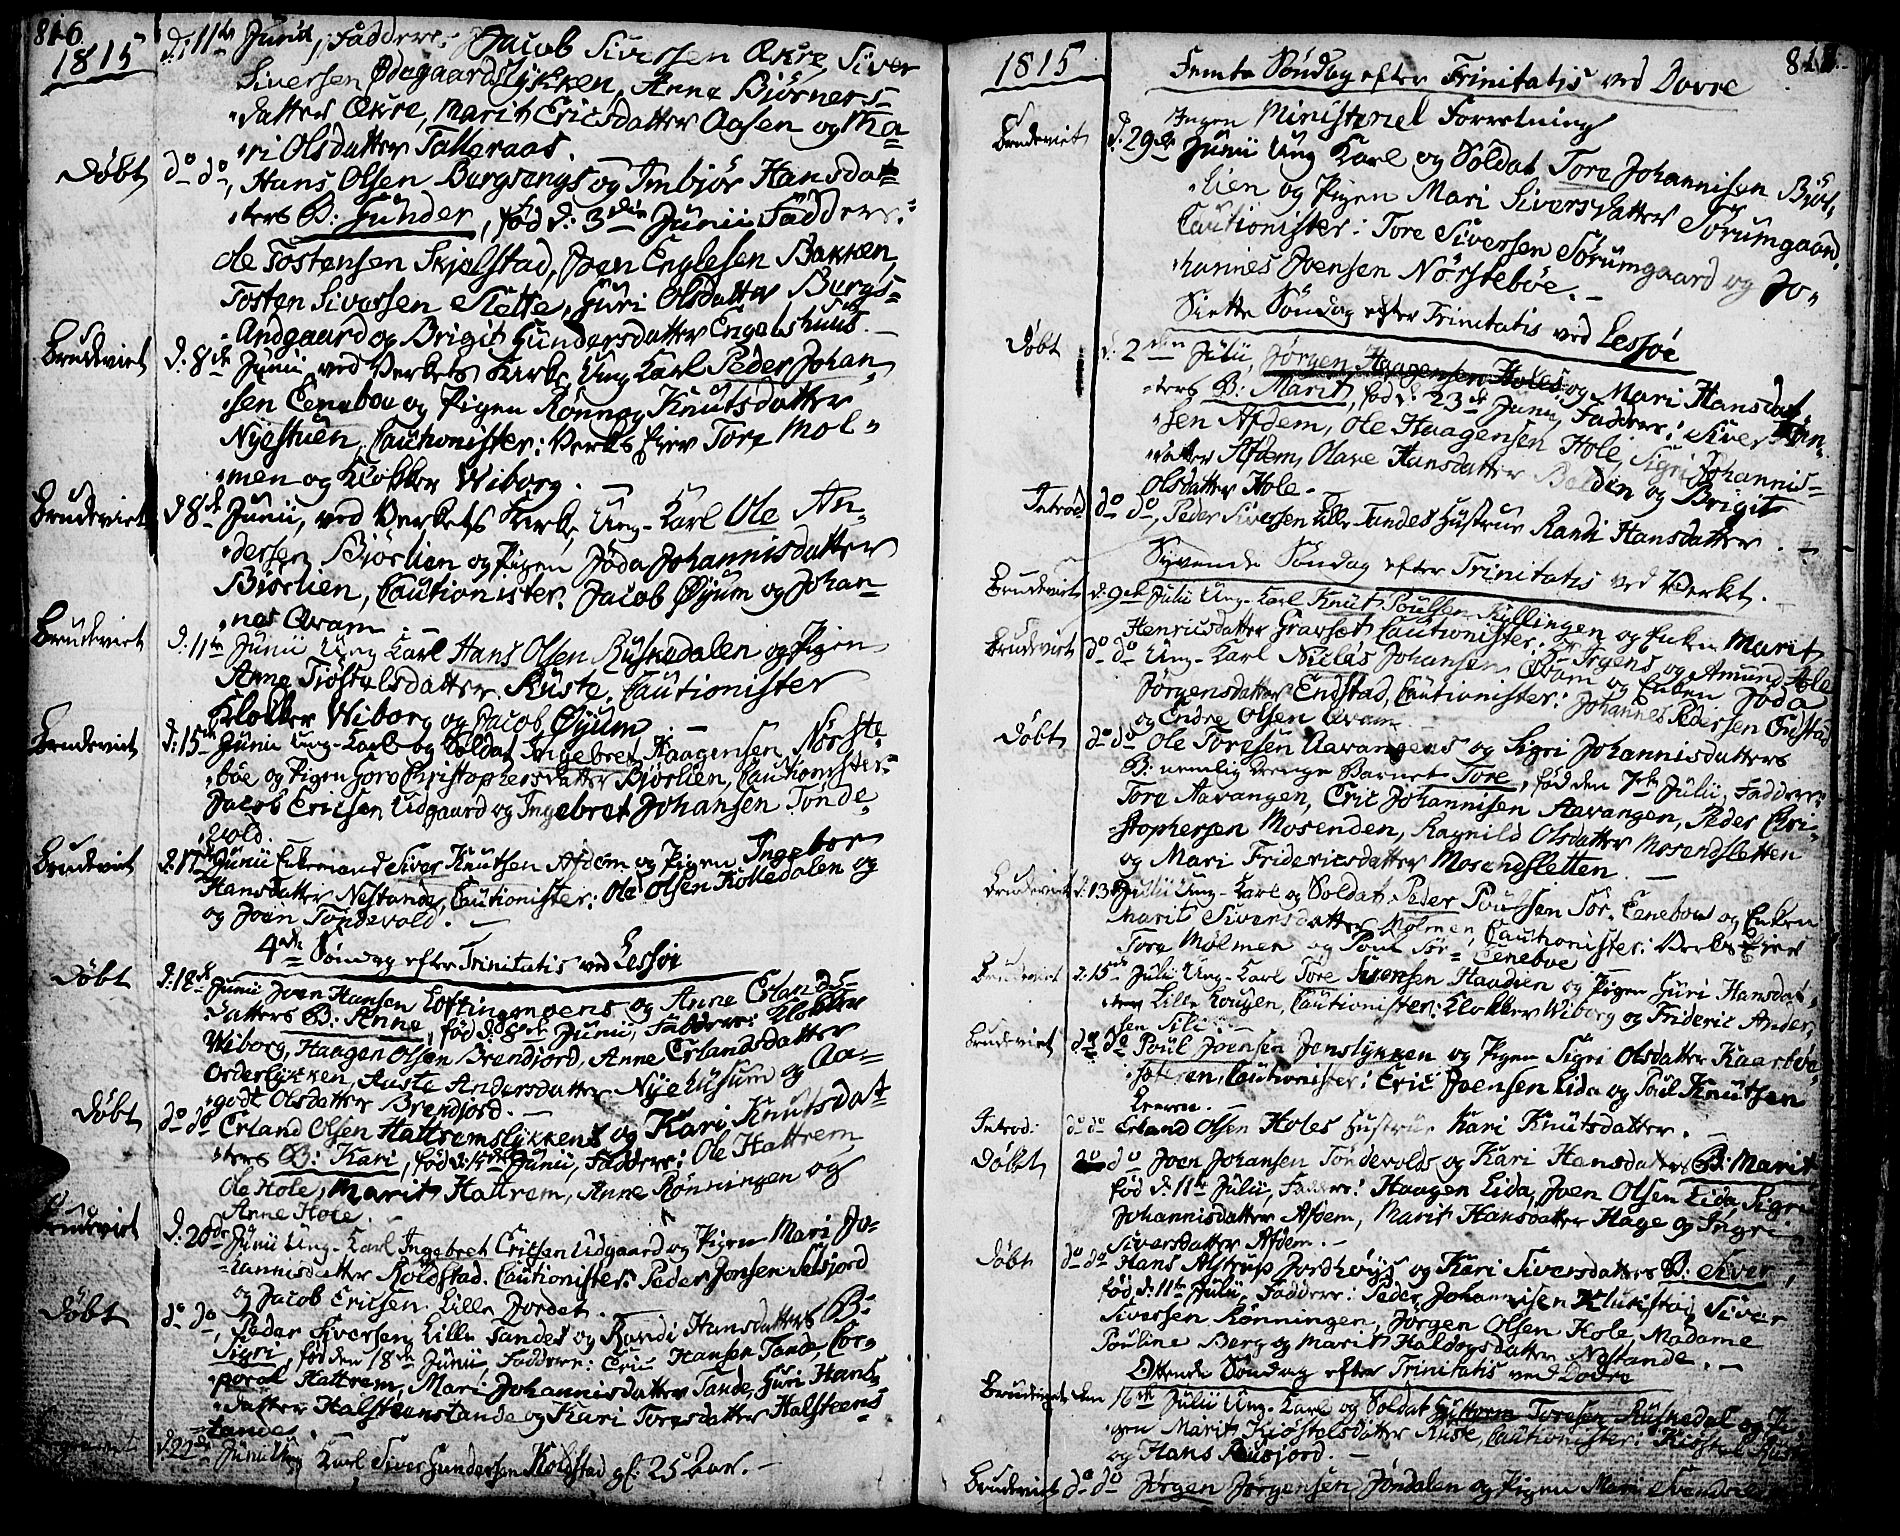 816.
1815
d: 11te Junii, Faddere: Jacob Siversen Økre, Siver
Siversen Ødegaardslykken, Anne Biørners-
datter Økre, Marit Ericsdatter Aasen og Ma-
ri Olsdatter Talleraas.
Døbt do do, Hans Olsen Bergsengs og Imbjør Hansdat-
ters B: Gunder, fød d: 3die Junii Faddere:
Ole Tostensen Skjelstad, Joen Englesen Bakken,
Tosten Siversen Slette, Guri Olsdatter Bergs-
Andgaard og Brigit Gundersdatter Engelshuus.
Brudeviet d: 8de Junii ved Verkets Kirke, Ung Karl Peder Johan-
sen Cenebou og Pigen Rønnog Knutsdatter
Nyestuen, Cautionister: Verks Eier Tore Mol-
men og Klokker Wiborg.
Brudeviet d 8de Junii, ved Verkets Kirke, Ung-Karl Ole An-
dersen Biørlien og Pigen Jøda Johannisdatter
Biørlien, Cautionister: Jacob Øyum og Johan-
nes Qvam.
Brudeviet d: 11te Junii Ung Karl Hans Olsen Ruskedalen og Pigen
Anne Tiøstelsdatter Ruste, Cautionister
Klokker Wiborg og Jacob Øyum
Brudeviet d: 15de Junii Ung-Karl og Soldat Ingebret Haagensen Nørste-
bøe og Pigen Goro Christophersdatter Biørlien, Cautionister:
Jacob Ericsen Lidgaard og Ingebret Johansen Tønde-
vold.
Brudeviet d: 17de Junii Enkemand Siver Knutsen Afdem og Pigen Ingebor
Hansdatter Nestande, Cautionister: Ole Olsen Kolledalen og
og Joen Tøndevold.
4de Søndag efter Trinitatis ved Lessøe
Døbt d: 18de Junii Joen Hansen Loftingmoens og Anne Erlands-
datters B: Anne, fød d: 8de Junii, Faddere: Klokker
Wiborg, Haagen Olsen Brendjord, Anne Erlandsdatter
Orderlykken, Aaste Andersdatter Nyehusum og Aa-
godt Olsdatter Brendjord.
Døbt do do Erland Olsen Hattremslykkens og Kari Knutsdat-
ters B: Kari, fød d: 15de Junii, Faddere: Ole Hattrem,
Ole Hole, Marit Hattrem, Anne Rønningen og
Anne Hole.
Brudeviet d: 20de Junii Ung-Karl Ingebret Ericsen Lidgaard og Pigen Mari Jo-
hannisdatter Koldstad. Cautionister: Peder Jonsen Selsjord
og Jacob Ericsen Lille Jordet.
Døbt do do, Peder Siversen Lille Tandes og Randi Hansdatters B:
Sigri, fød den 18de Junii, Faddere: Eric Hansen Tande, Cor-
poral Hattrem, Mari Johannisdatter Tande, Guri Hans-
datter Halsteenstande og Kari Toresdatter Halsteens-
tande.
d: 22de Junii Ung Karl Siver Gundersen Koldstad gl: 25 Aar.
1815
817.
Femte Søndag efter Trinitatis ved Dovre
Ingen Ministeriel Forretning
Brudeviet d: 29de Junii Ung Karl og Soldat Tore Johannisen Biøl-
lien og Pigen Mari Siversdatter Sørumgaard.
Cautionister: Tore Siversen Sørumgaard og Jo-
hannes Joensen Nørstebøe.
Siette Søndag efter Trinitatis ved Lessøe
Døbt d: 2den Julii, Jørgen Haagensen Holes og Mari Hansdat-
ters B: Marit, fød d: 23de Junii, Faddere: Siver Han-
sen Afdem, Ole Haagensen Hole, Sigri Johannis-
datter Afdem, Olave Hansdatter og Brigit
Olsdatter Hole.
Introd do do, Peder Siversen Lille Tandes Hustrue Randi Hansdatter.
Syvende Søndag efter Trinitatis ved Verket.
Brudeviet d: 9de Julii Ung-Karl Knut Poulsen Kyllingen og Enken Marit
Henricsdatter Gravset, Cautionister: Irgens og Amund Hole
Brudeviet do do Ung-Karl Niclas Johansen Qvam og Enken Joda
Jørgensdatter Endstad, Cautionister: Johannes Pedersen Endstad
og Endre Olsen Qvam
Døbt do do Ole Toresen Aavangens og Sigri Johannisdatters
B: nemlig Drenge Barnet Tore, fød den 7de Julii, Faddere:
Tore Aavangen, Eric Johannisen Aavangen, Peder Chri-
stophersen Mosenden, Ragnild Olsdatter Mosendsletten
og Mari Fridericsdatter Mosendsletten.
Brudeviet d: 13de Julii Ung-Karl og Soldat Peder Poulsen Sør-Cenebou og Enken
Marit Siversdatter Molmen, Cautionister: Verks Eier
Tore Mølmen og Poul Sør-Cenebou
Brudeviet d: 15de Julii Ung-Karl Tore Ivarsen Haadien og Pigen Guri Hansdat-
ter Lille Kougen, Cautionister: Klokker Wiborg og Frideric Ander-
sen
Brudeviet do do Poul Joensen Jenslykken og Pigen Sigri Olsdatter Kaarbøe-
sæteren, Cautionister: Eric Joensen Lida og Poul Knutsen
Introd: do do Erland Olsen Holes Hustrue Kari Knutsdatter.
Døbt do Joen Johansen Tøndevolds og Kari Hansdatters B: Marit
fød d: 11te Julii, Faddere: Haagen Lida, Joen Olsen Lida, Sigri
Johannisdatter Afdem, Marit Hansdatter Hage og Ingri
Siversdatter Afdem.
Døbt do do Hans Alstrup Jordhøys og Kari Siversdatters B: Siver,
fød d: 11te Julii, Faddere: Peder Johannisen Klukstad, Siver
Siversen Rønningen, Jørgen Olsen Hole, Madame
Pouline Berg og Marit Haldogsdatter Nestande.
Ottende Søndag efter Trinitatis ved Dovre
Brudeviet den 16de Julii Ung-Karl og Soldat Guttorm Toresen Ruskedal og Pi-
gen Marit Kiøstelsdatter Ruste, Cautionister: Kiøstel Ruste
og Hans Rusjord.
Brudeviet do do Jørgen Jørgensen Jøndalen og Pigen Mari